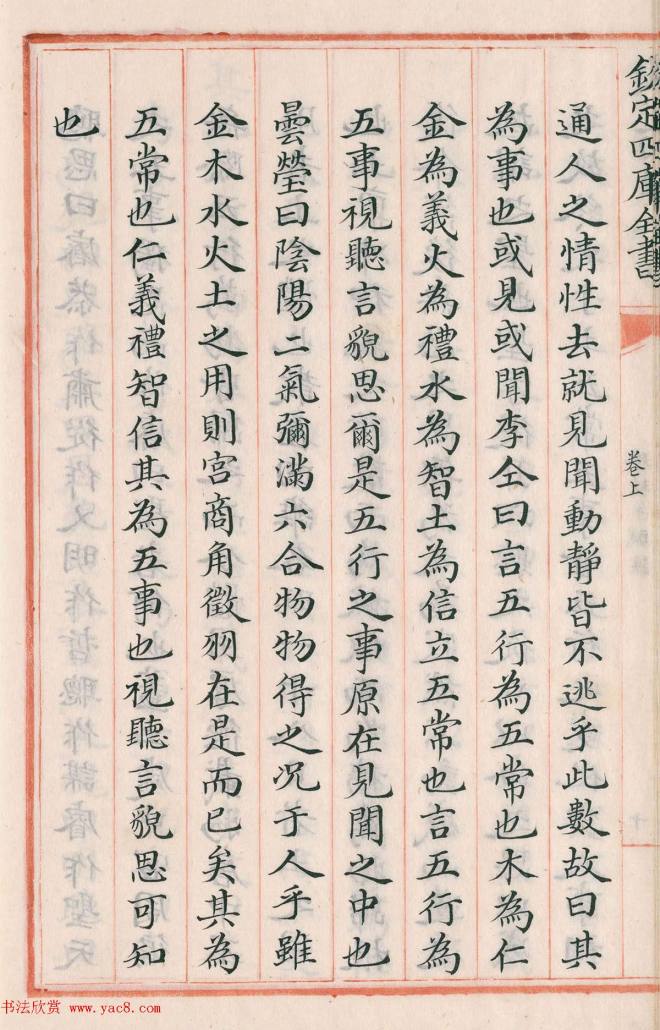 欽定四庫全書
卷上
通人之情性去就見聞動靜皆不逃乎此數故曰其
為事也或見或聞李仝曰言五行為五常也木為仁
金為義火為禮水為智土為信立五常也言五行為
五事視聽言貌思爾是五行之事原在見聞之中也
曇瑩曰陰陽二氣彌滿六合物物得之况于人乎雖
金木水火土之用則宫商角徵羽在是而已矣其為
五常也仁義禮智信其為五事也視聽言貌思可知
也
书法欣赏 www.yac8.com